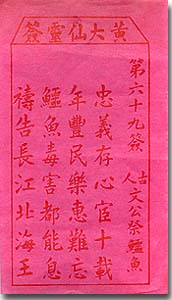 黃大仙靈簽
第六十九簽
古人文公祭鱷魚
忠義存心宦十載
年豐民樂惠難忘
鱷魚毒害都能息
禱告長江北海王